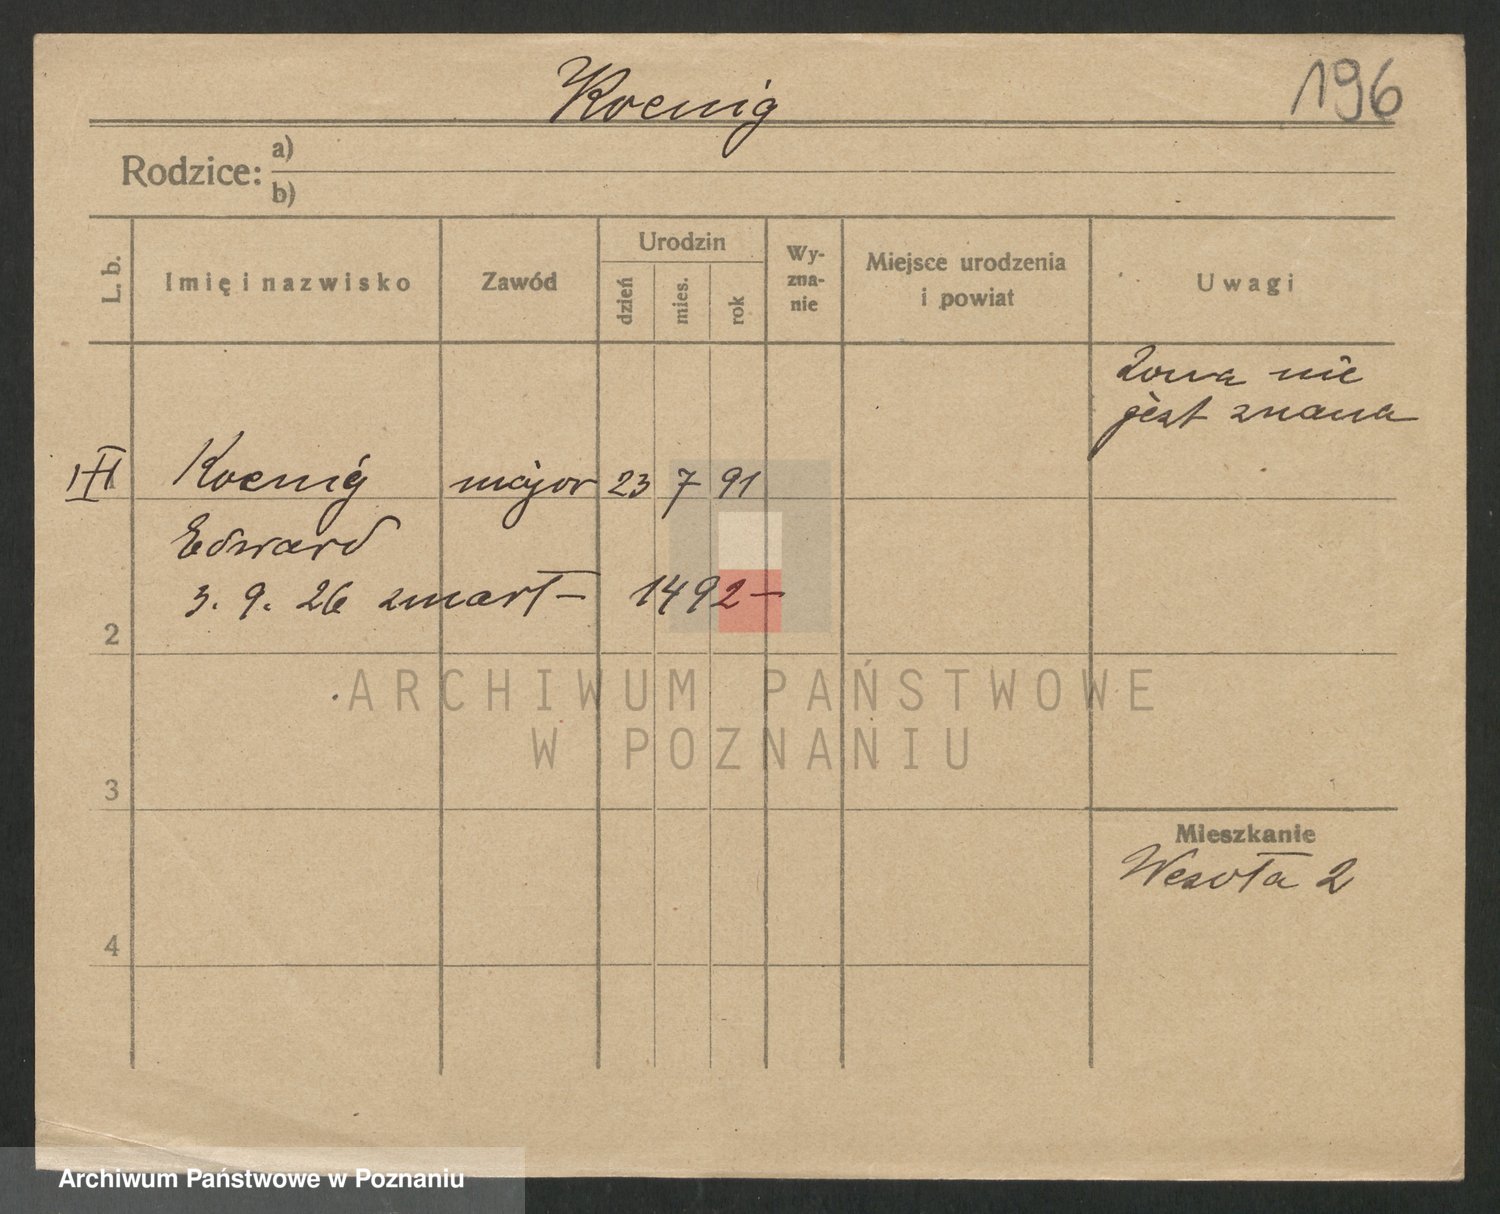 Koenig
196
Rodzice: a)
b)
L. b.
Imię i nazwisko
Zawód
Urodzin
dzień
mies.
rok
Wy-
zna-
nie
Miejsce urodzenia
i powiat
Uwagi
żona nie
jest znana
III Koenig major 23 7 91
Edward
3. 9. 26 zmarł – 1492 –
2
3
4
Mieszkanie
Wesoła 2
ARCHIWUM PAŃSTWOWE
W POZNANIU
Archiwum Państwowe w Poznaniu